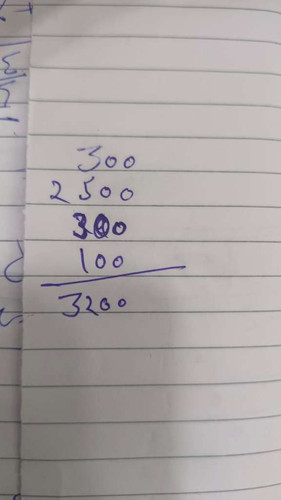 300
2500
300
100
3200